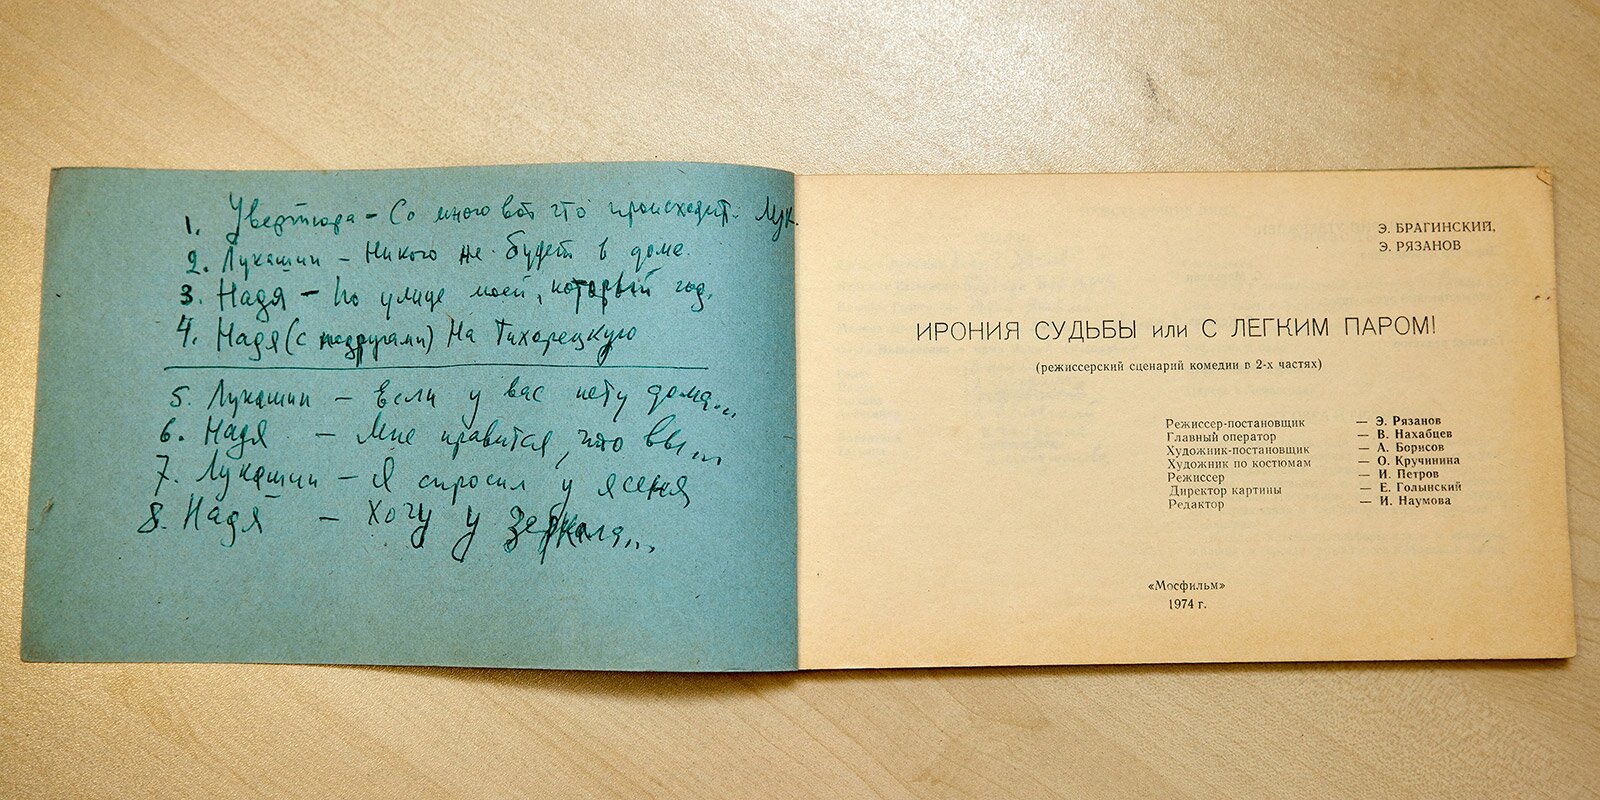 1. Увертюра – Со мною вот что происходит. Лук.
2. Лукашин – Никого не будет в доме.
3. Надя – По улице моей, который год.
4. Надя (с подругами) На Тихорецкую
5. Лукашин – Если у вас нету дома...
6. Надя – Мне нравится, что вы...
7. Лукашин – Я спросил у ясеня
8. Надя – Хочу у зеркала...
Э. БРАГИНСКИЙ,
Э. РЯЗАНОВ
ИРОНИЯ СУДЬБЫ или С ЛЕГКИМ ПАРОМ!
(режиссерский сценарий комедии в 2-х частях)
Режиссер-постановщик — Э. Рязанов
Главный оператор — В. Нахабцев
Художник-постановщик — А. Борисов
Художник по костюмам — О. Кручинина
Режиссер — И. Петров
Директор картины — Е. Голынский
Редактор — И. Наумова
«Мосфильм»
1974 г.